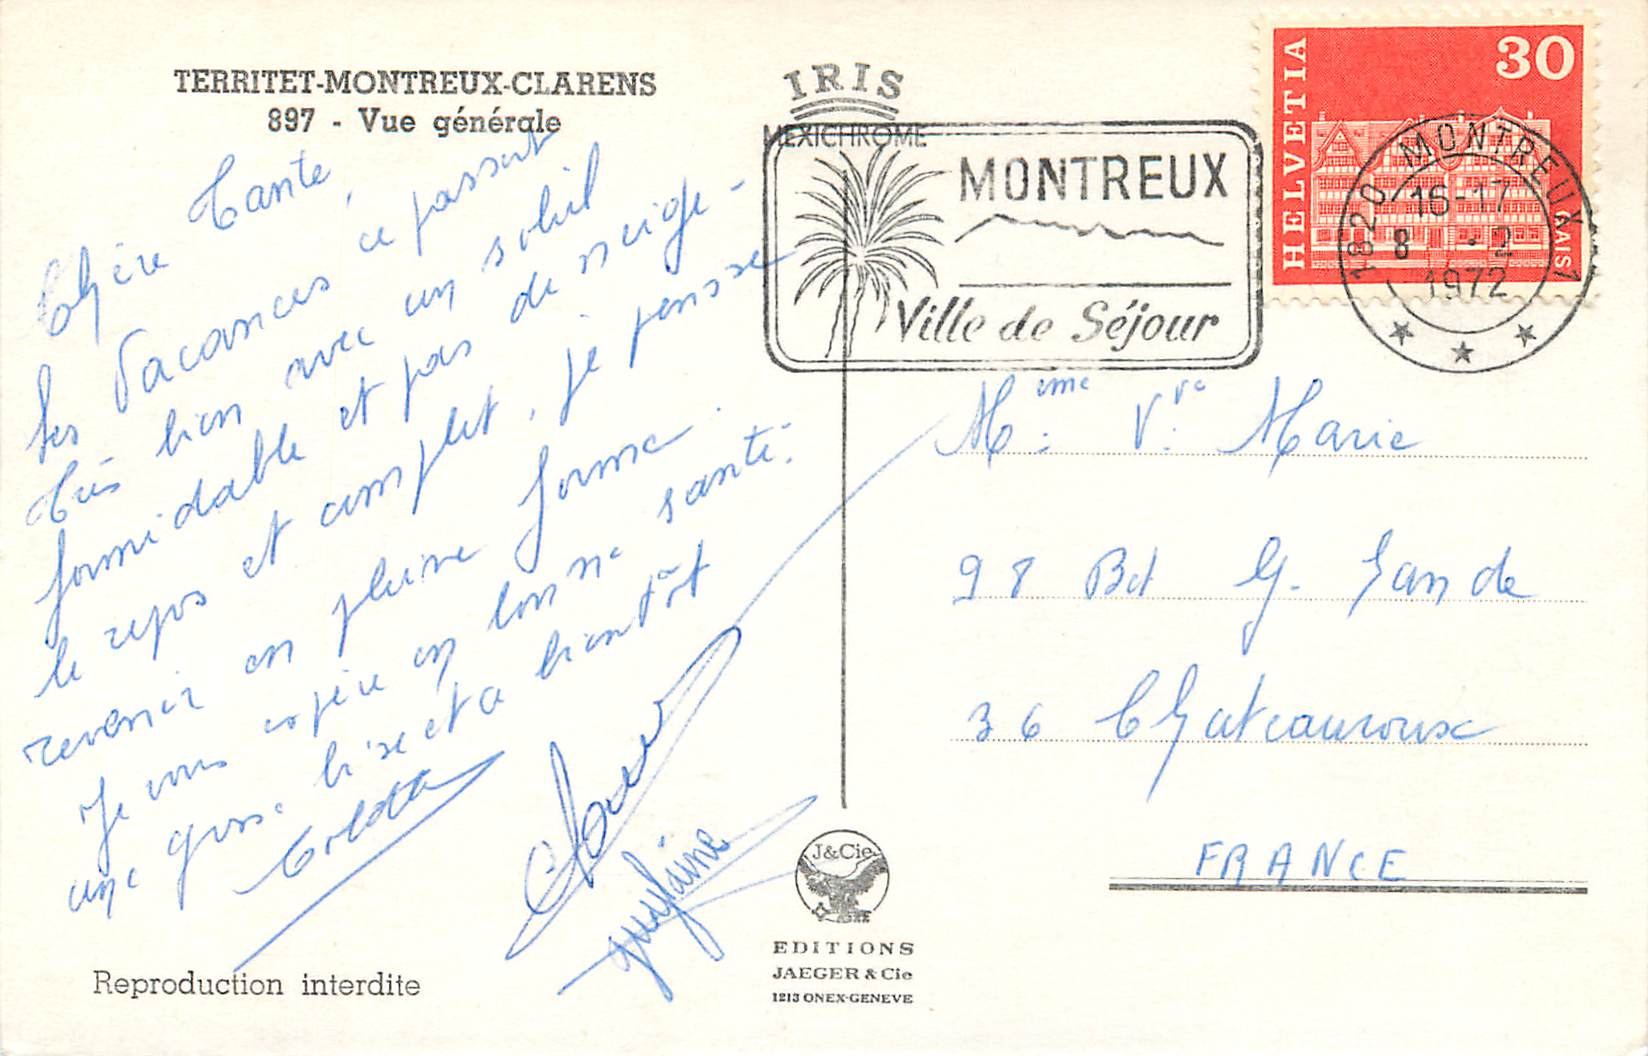 TERRITET-MONTREUX-CLARENS
897 - Vue générale
Chère Tante,
les Vacances ce passent
très bien avec un soleil
formidable et pas de neige -
le repos et complet, je pense
revenir en pleine forme.
Je vous espère en bonne santé.
une grosse bise et a bientôt
ghylaine
Reproduction interdite
IRIS
MEXICHROME
MONTREUX
Ville de Séjour
HELVETIA
30
1820 MONTREUX 1
16-17
8.-2
1972
Mème Vve Marie
98 Bd G. Sande
36 Chateauroux
FRANCE
J&Cie
EDITIONS
JAEGER & Cie
1213 ONEX-GENEVE